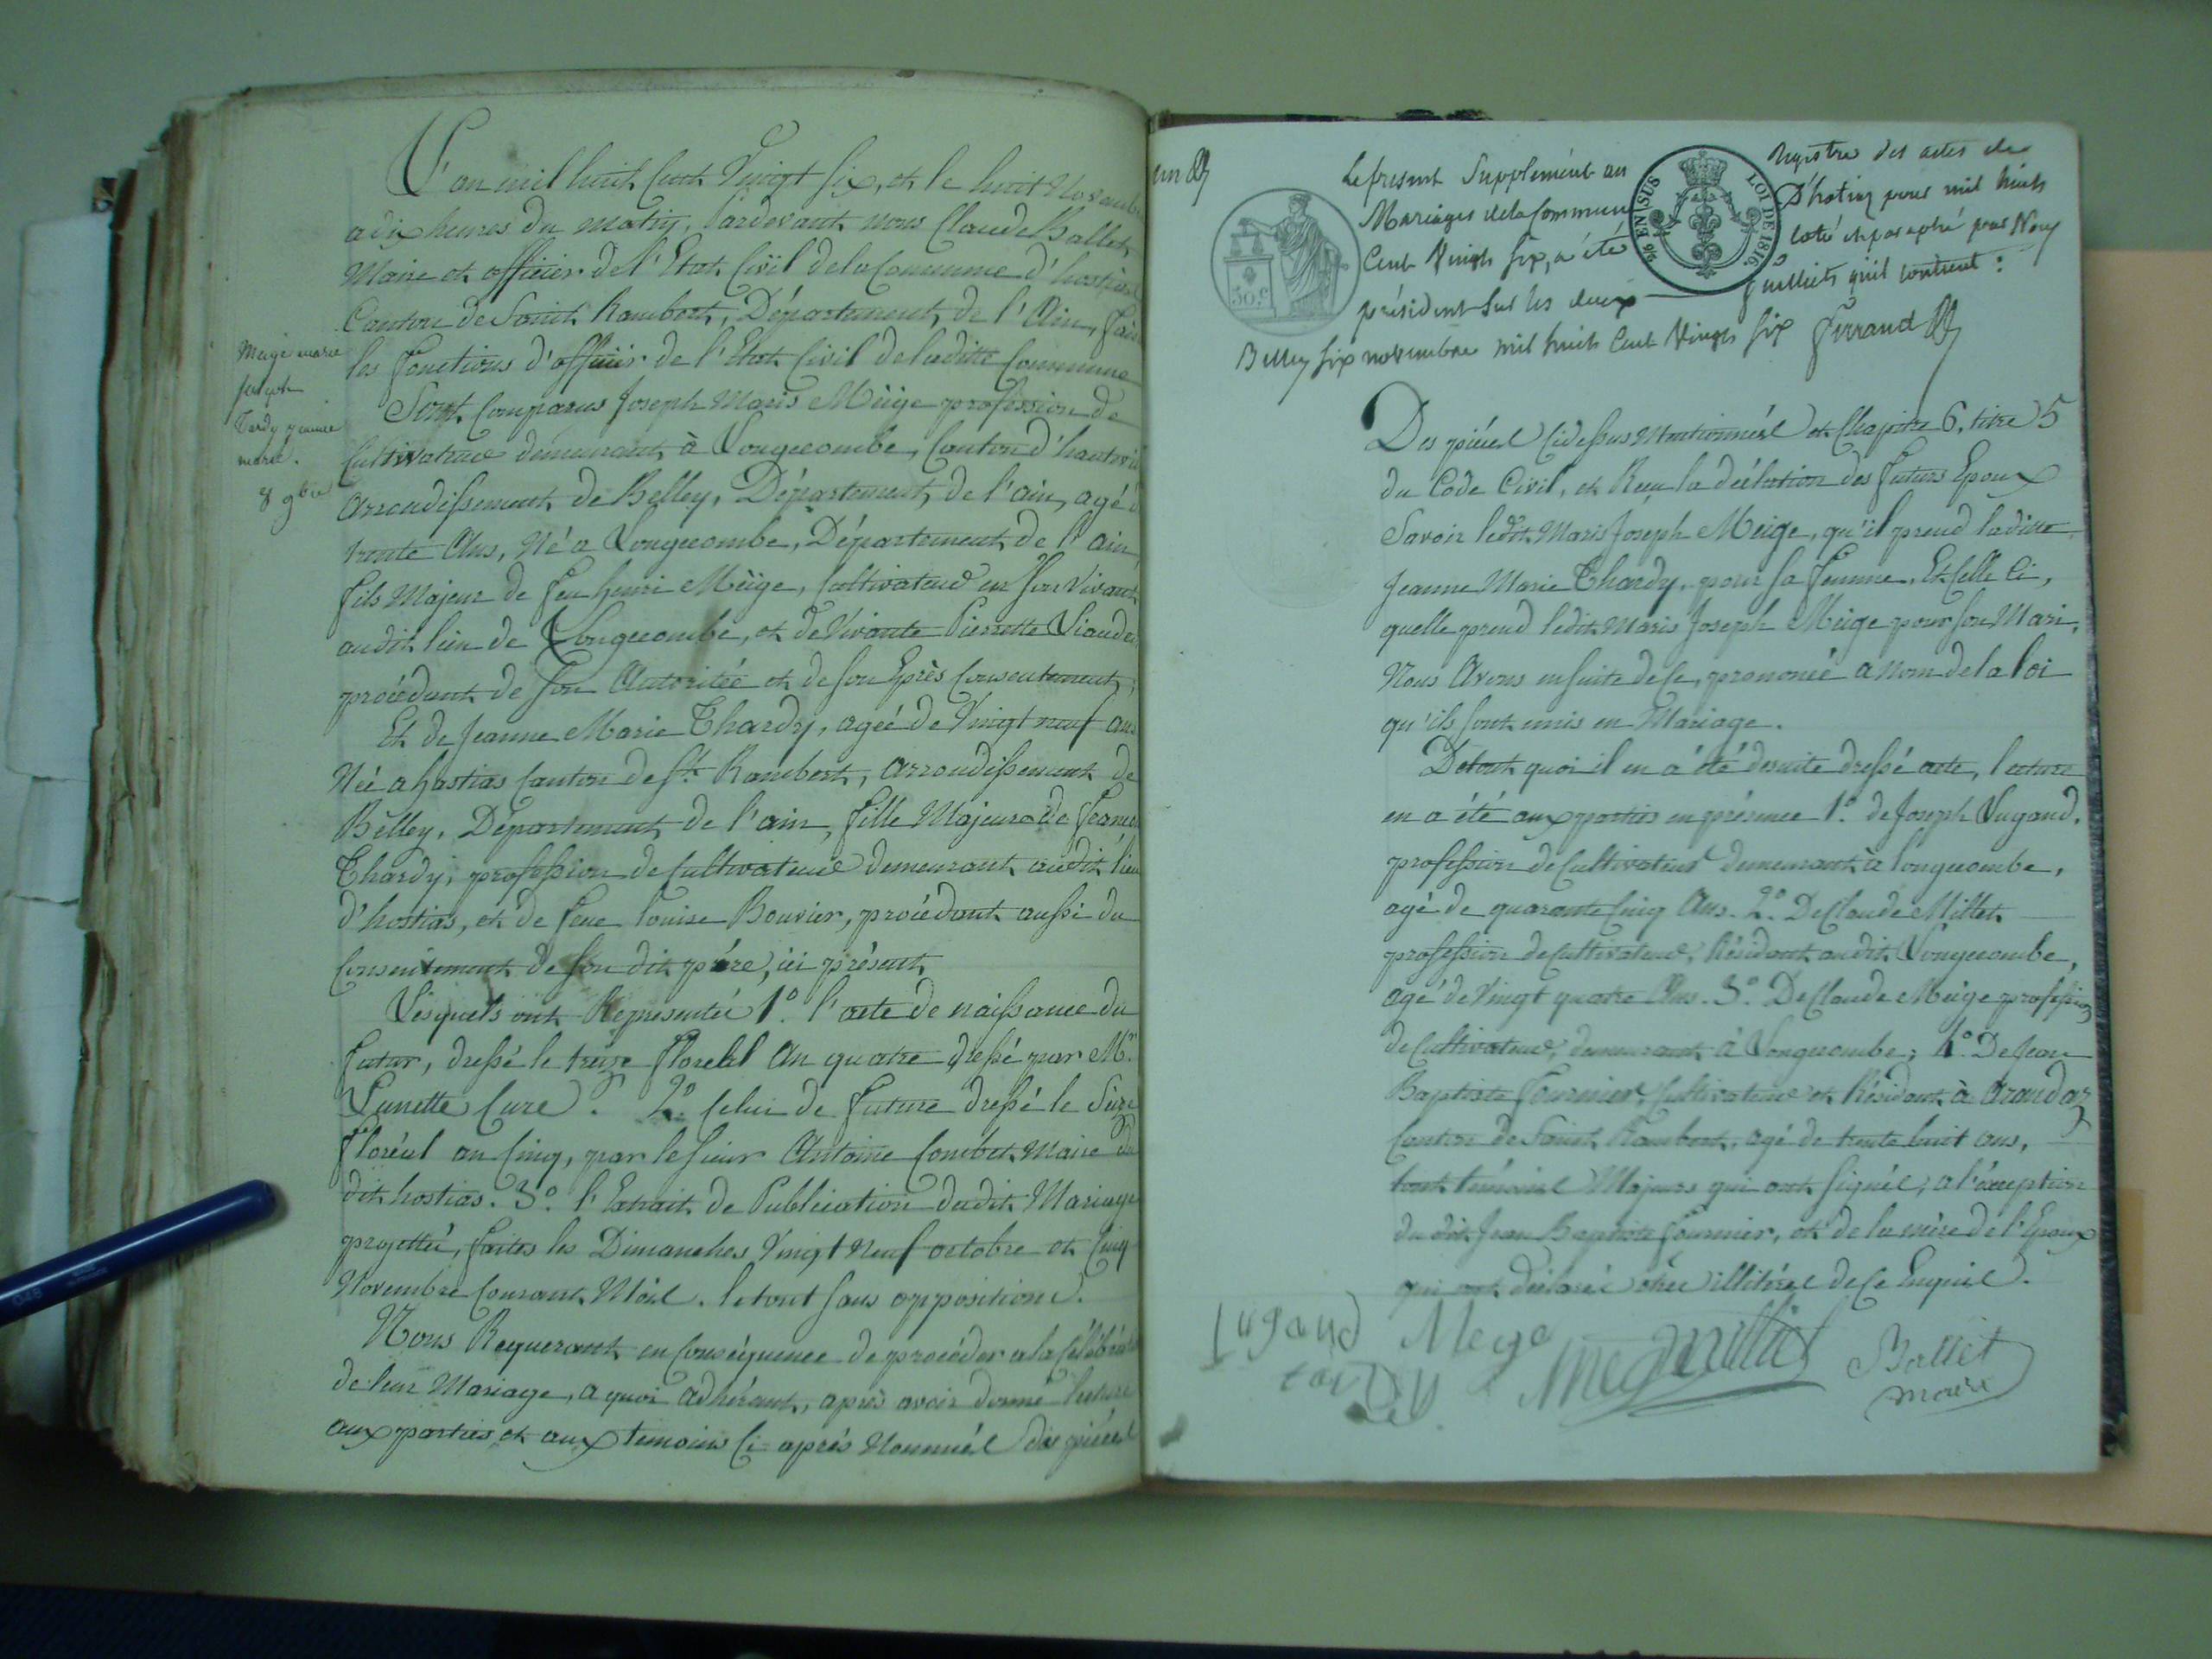 L'an mil huit Cent Vingt Six, et le huit Novembre
a dix heures du matin, Pardevant nous Claude Ballet,
Maire et officier de l'Etat Civil de la Commune d'hostias
Canton de Saint Rambert, Département de l'Ain, fais
les fonctions d'officier de l'Etat Civil de laditte Commune
Sont Comparus Joseph Marie Meïge profession de
Cultivateur demeurant à Longecombe, Canton d'hautevi
Arrondissement de Belley, Département de l'ain, agé d
trente Ans, Né a Longecombe, Département de l'ain,
fils Majeur de feu henri Meïge, Cultivateur en son Vivant
audit lieu de Longecombe, et de Vivante Pierrette Viaudes
procédant de son Autoritée et de son Exprès Consentement,
Et de Jeanne Marie Thardy, agée de Vingt neuf ans
Née a hostias Canton de St. Rambert, Arrondissement de
Belley, Département de l'ain, fille Majeure de
Thardy, profession de Cultivateur demeurant audit lieu
d'hostias, et de feue Louise Bouvier, procédant aussi du
Consentement de son dit père, ici présent
Lesquels ont Représentés 1°. l'acte de naissance du
futur, dressé le treize floreal An quatre dressé par Mr.
Lunette Cure. 2°. Celui de future dressé le Seize
floréal an Cinq, par le Sieur Antoine Combet Maire du
dit hostias. 3°. l'Extrait de Publication dudit Mariage
projetté, faites les Dimanches Vingt Neuf octobre et Cinq
Novembre Courant Mois. le tout sans oppositions.
Nous Requerant en Conséquence de procéder a la Célébrat
de leur Mariage, a quoi adhérant, après avoir donné lecture
aux parties et aux témoins Ci-après Nommés des pièces
Meige marie
joseph
Tardy jeanne
marie.
8 9bre
un
Le présent Supplément au registre des actes de
Mariages de la Commune D'hostiaz pour mil huit
Cent Vingt six, a été coté et paraphé par Nous
président sur les deux feuillets qu'il contient :
Belley six novembre mil huit Cent Vingt six Ferrand
50 C
96 EN SUS
LOI DE 1816
Des pièces Cidessus Mentionnées et Chapitre 6, titre 5
du Code Civil, et Reçu la déclation des futurs Epoux
Savoir ledit Marie Joseph Meïge, qu'il prend laditte
Jeanne Marie Thardy, pour sa femme, Et Celle Ci,
quelle prend ledit Marie Joseph Meïge pour son Mari,
Nous Avons ensuite de Ce, prononcé a Nom de la loi
qu'ils sont unis en Mariage.
De tout quoi il en a été desuite dressé acte, lecture
en a été aux parties en présence 1°. de Joseph Lugand.
profession de Cultivateur demeurant à longecombe,
agé de quarante Cinq Ans. 2°. De Claude Millet
profession de Cultivateur, Résidant audit Longecombe,
agé de Vingt quatre Ans. 3°. De Claude Meïge profession
de Cultivateur, demeurant à Longecombe; 4°. De Jean
Baptiste Fournier, Cultivateur et Résidant à Arandaz
Canton de Saint Rambert, agé de trente huit ans,
tout témoins Majeurs qui ont signés, a l'éxeption
du dit Jean Baptiste fournier, et de la mère de l'Epoux
qui ont déclaré être illitérés de Ce Enquis.
Lugand Meige
tardy
Ballet
maire